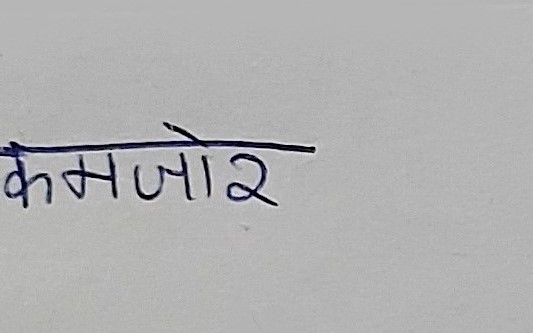 कमजोर